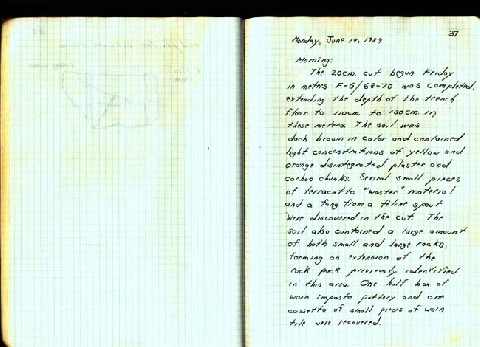 37
Monday, June 19, 1989
Morning:
The 20cm cut begun Friday
in meters F=5/68-70 was completed,
extending the depth of the trench
floor to to 120cm in
these meters. The soil was
dark brown in color and contained
light concentrations of yellow and
orange disintegrated plaster and
carbon chunks. Several small pieces
of terracotta "waster" material
and a fang from a feline spout
were discovered in the cut. The
soil also contained a large amount
of both small and large rocks,
forming an extension of the
rock pack previously identified
in this area. One half box of
worn impasto pottery and one
cassetta of small pieces of worn
tile were recovered.